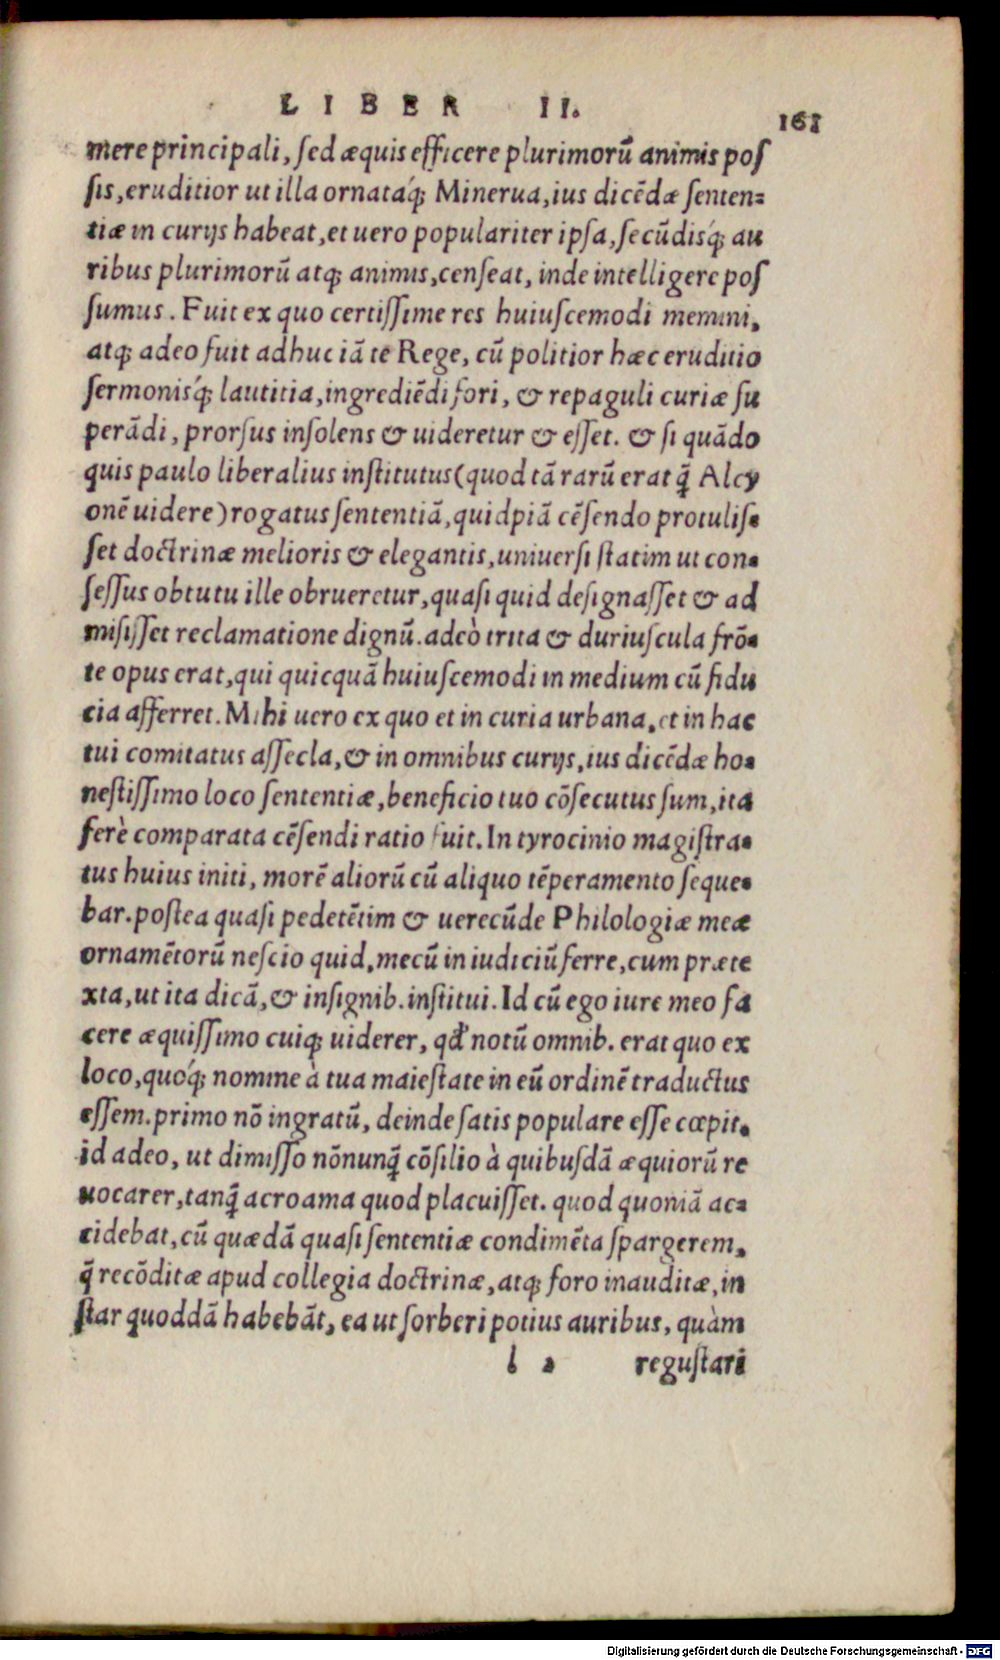 LIBER II. 161
mere principali, ſed æquis efficere plurimorū animis poſ
ſis, eruditior ut illa ornataq́; Minerua, ius dicēdæ ſenten=
tiæ in curijs habeat, et uero populariter ipſa, ſecūdisq́; au
ribus plurimorū atq; animis, cenſeat, inde intelligere poſ
ſumus. Fuit ex quo certiſſime res huiuſcemodi memini,
atq; adeo fuit adhuc iā te Rege, cū politior hæc eruditio
ſermonisq́; lautitia, ingrediēdi fori, & repaguli curiæ ſu
perādi, prorſus inſolens & uideretur & eſſet. & ſi quādo
quis paulo liberalius inſtitutus (quod tā rarū erat q̃ Alcy
onē uidere) rogatus ſententiā, quidpiā cēſendo protuliſ=
ſet doctrinæ melioris & elegantis, uniuerſi ſtatim ut con=
ſeſſus obtutu ille obrueretur, quaſi quid deſignaſſet & ad
miſiſſet reclamatione dignū. adeò trita & duriuſcula frō=
te opus erat, qui quicquā huiuſcemodi in medium cū fidu
cia afferret. Mihi uero ex quo et in curia urbana, et in hac
tui comitatus aſſecla, & in omnibus curijs, ius dicēdæ ho=
neſtiſſimo loco ſententiæ, beneficio tuo cōſecutus ſum, ita
ferè comparata cēſendi ratio fuit. In tyrocinio magiſtra=
tus huius initi, morē aliorū cū aliquo tēperamento ſeque=
bar. poſtea quaſi pedetētim & uerecūde Philologiæ meæ
ornamētorū neſcio quid, mecū in iudiciū ferre, cum præte
xta, ut ita dicā, & inſignib. inſtitui. Id cū ego iure meo fa
cere æquiſſimo cuiq; uiderer, qđ notū omnib. erat quo ex
loco, quoq́; nomine à tua maieſtate in eū ordinē traductus
eſſem. primo nō ingratū, deinde ſatis populare eſſe cœpit,
id adeo, ut dimiſſo nōnunq̃ cōſilio à quibuſdā æquiorū re
uocarer, tanq̃ acroama quod placuiſſet. quod quoniā ac=
cidebat, cū quædā quaſi ſententiæ condimēta ſpargerem,
q̃ recōditæ apud collegia doctrinæ, atq; foro inauditæ, in
ſtar quoddā habebāt, ea ut ſorberi potius auribus, quàm
l 2 reguſtari
Digitalisierung gefördert durch die Deutsche Forschungsgemeinschaft - DFG